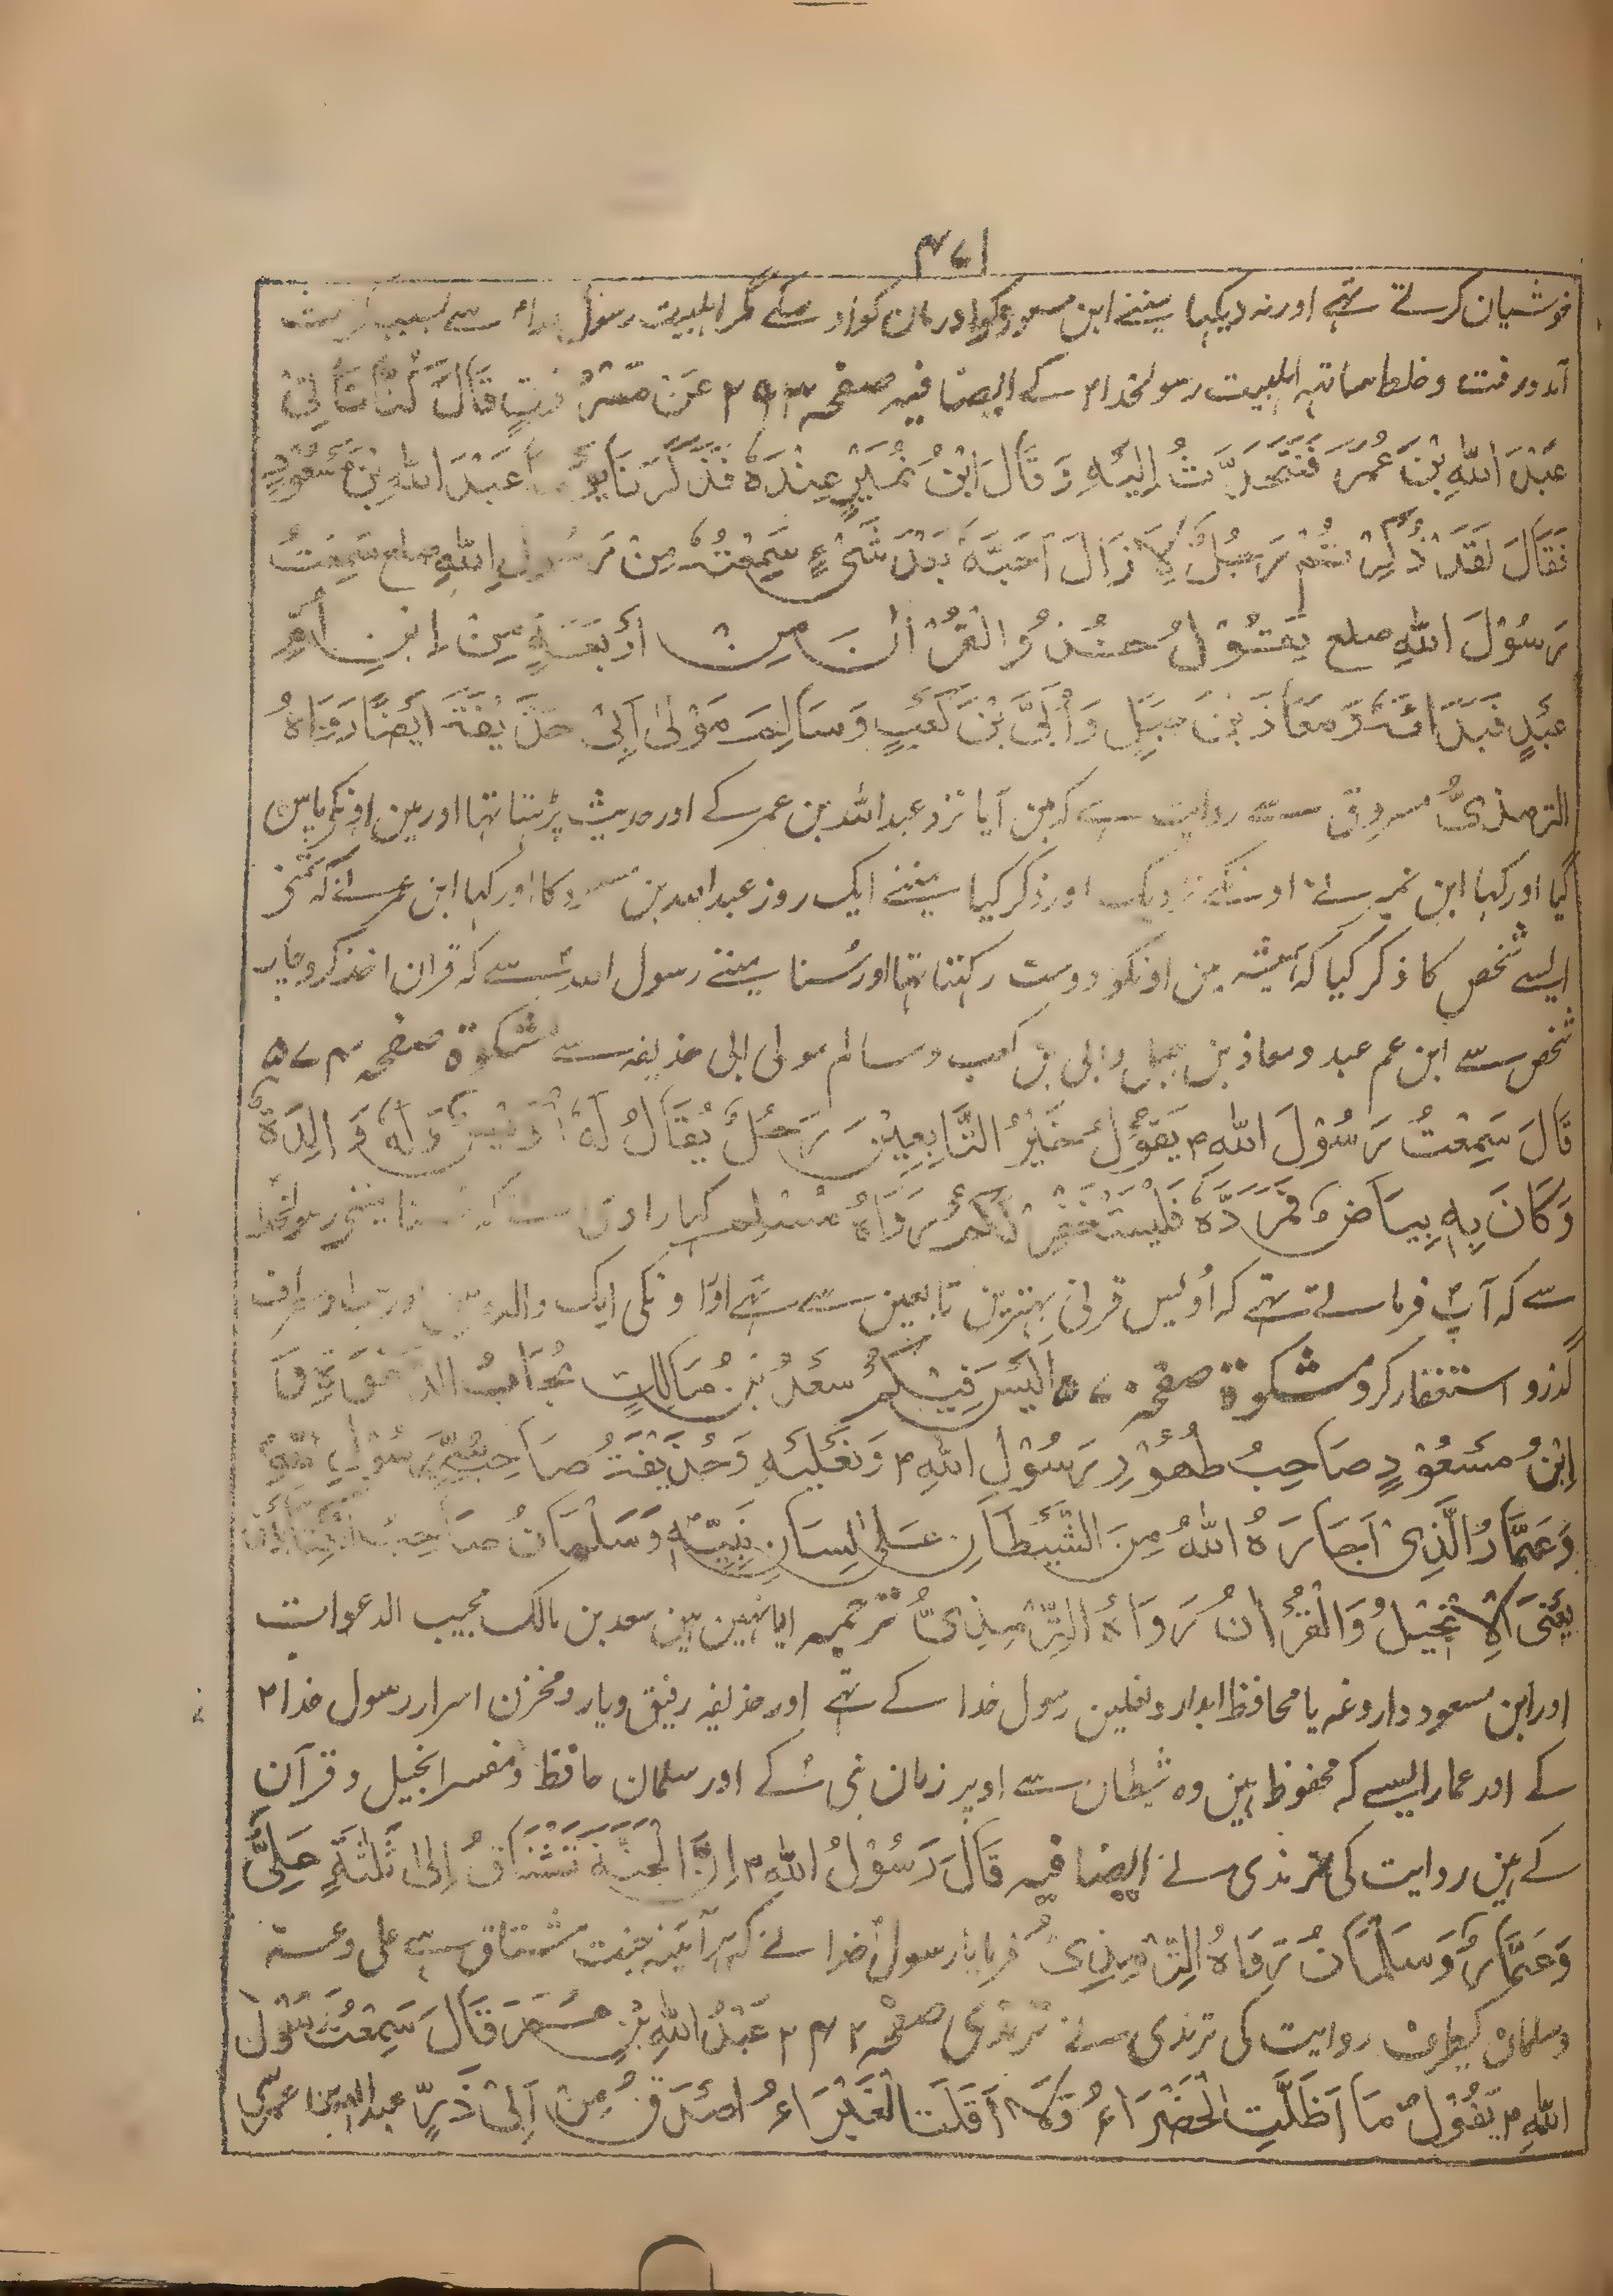 ۴۷۱
خوشیان کرتے تہے اور نہ دیکہا مینے ابن مسعود کو اور مان کو اوسکے مگر اہلبیت رسول سے بسبب
آمدورفت و خلط ساتہہ اہلبیت رسولخدام کے ایضا فیہ صفحہ ۲۹۳ عَن مَسْرُوْقٍ قَالَ كُنَّا نَأْتِیْ
عَبْدَ اللّٰهِ بْنَ عُمَرَ فَنَتَحَدَّثُ اِلَيْهِ وَقَالَ ابْنُ نُمَيْرٍ عِنْدَهٗ فَذَكَرْنَا يَوْمًا عَبْدَ اللّٰهِ بْنَ مَسْعُوْدٍ
فَقَالَ لَقَدْ ذَكَرْتُمْ رَجُلًا لَا زَالَ اُحِبُّهٗ بَعْدَ شَیْءٍ سَمِعْتُهٗ مِنْ رَسُوْلِ اللّٰهِ صلع سَمِعْتُ
رَسُوْلَ اللّٰهِ صلع يَقُوْلُ خُذُوا الْقُرْاٰنَ مِنْ اَرْبَعَةٍ مِنْ اِبْنِ اُمِّ
عَبْدٍ فَبَدَاَ وَمُعَاذَ بْنَ جَبَلٍ وَاُبَیَّ بْنَ كَعْبٍ وَسَالِمَ مَوْلٰی اَبِیْ حُذَيْفَةَ اَيْضًا رَوَاهُ
التِّرمذیُّ مسروق سے روایت ہے کہ مین آیا نزد عبد اللہ بن عمر کے اور حدیث پڑہتا تہا اور مین اونکے پاس
گیا اور کہا ابن نمیر نے اونکے نزدیک اور ذکر کیا مینے ایک روز عبد اللہ بن مسعود کا اور کہا ابن عمر نے کہ تمنے
ایسے شخص کا ذکر کیا کہ ہمیشہ مین اونکو دوست رکہتا تہا اور سُنا مینے رسول اللہ سے کہ قران اخذ کرو چار
شخص سے ابن عم عبد و معاذ بن جبل و ابی بن کعب و سالم مولی ابی حذیفہ سے مشکوة صفحہ ۵۷۴
قَالَ سَمِعْتُ رَسُوْلَ اللّٰهِ م يَقُوْلُ خَيْرُ التَّابِعِيْنَ رَجُلٌ يُقَالُ لَهٗ اُوَيْسٌ وَلَهٗ وَالِدَةٌ
وَكَانَ بِهٖ بَيَاضٌ فَمُرُوْهُ فَلْيَسْتَغْفِرْ لَكُمْ رَوَاهُ مُسْلِم کہا راوی نے کہ سنا مینے رسولخدا
سے کہ آپ فرماتے تہے کہ اُوئیس قرنی بہترین تابعین سے تہے اور اونکی ایک والدہ
گذرو استغفار کرو مشکوة صفحہ ۵۷۰ اَلَيْسَ فِيْكُمْ سَعْدُ بْنُ مَالِكٍ مُجَابُ الدَّعْوَةِ وَ
اِبْنُ مَسْعُوْدٍ صَاحِبُ طَهُوْرِ رَسُوْلِ اللّٰهِ م وَنَعْلَيْهِ وَحُذَيْفَةُ صَاحِبُ سِرِّ رَسُوْلِ
وَعَمَّارُ الَّذِیْ اَجَارَهُ اللّٰهُ مِنَ الشَّيْطَانِ عَلٰی لِسَانِ نَبِيِّهٖ وَسَلْمَانُ صَاحِبُ الْكِتَابَيْنِ
يَعْنِیَ الْاِنْجِيْلُ وَالْقُرْاٰنُ رَوَاهُ التِّرْمِذِیُّ ترجمہ ایا نہین ہین سعد بن مالک مجیب الدعوات
اور ابن مسعود داروغہ یا محافظ ابدار و نعلین رسول خدا کے تہے اور حذیفہ رفیق و یار و مخزن اسرار رسول خدا م
کے اور عمار ایسے کہ محفوظ ہین وہ شیطان سے اوپر زبان نبی کے اور سلمان حافظ و مفسر انجیل و قرآن
کے ہین روایت کی ترمذی نے ایضا فیہ قَالَ رَسُوْلُ اللّٰهِ م اِنَّ الْجَنَّةَ تَشْتَاقُ اِلٰی ثَلٰثَةٍ عَلِیٍّ
وَعَمَّارٍ وَسَلْمَانَ رَوَاهُ التِّرْمِذِیُ فرمایا رسول خدا نے کہ ہر آئینہ جنت مشتاق ہے علی و عمار
و سلمان کیطرف روایت کی ترمذی نے ترمذی صفحہ ۲۴۲ عَبْدُ اللّٰهِ بْنِ عُمَرَ قَالَ سَمِعْتُ رَسُوْلَ
اللّٰهِ م يَقُوْلُ مَا اَظَلَّتِ الْخَضْرَاءُ وَلَا اَقَلَّتِ الْغَبْرَاءُ اَصْدَقَ مِنْ اَبِیْ ذَرٍّ عبد اللہ بن عمر سے